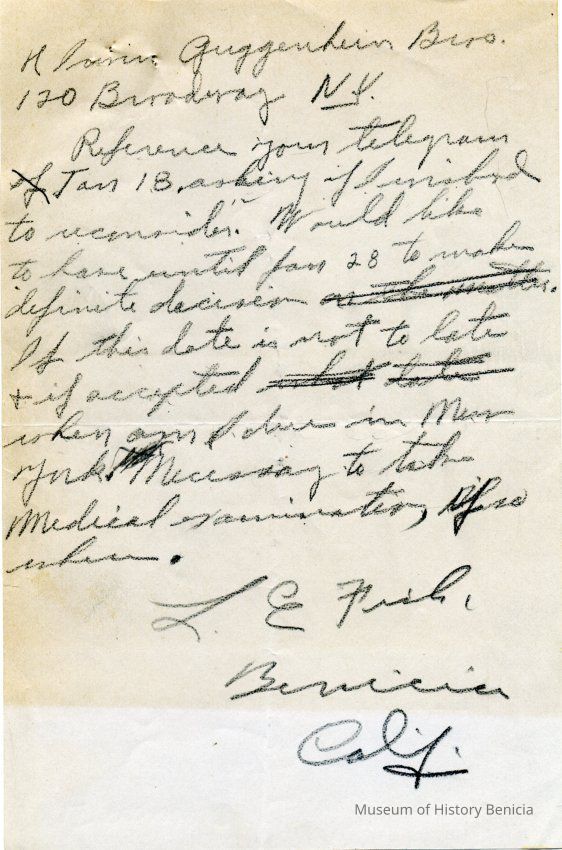 Guggenheim Bros.
120 Broadway N.Y.
Reference your telegram
of Jan 13, asking if I wished
to reconsider. Would like
to have until Jan 28 to make
definite decision on the matter.
If this date is not to late
& if accepted what date
when am I due in New
York. Necessary to take
Medical examination, If so
when.
L. E. Fish.
Benicia
Calif.
Museum of History Benicia